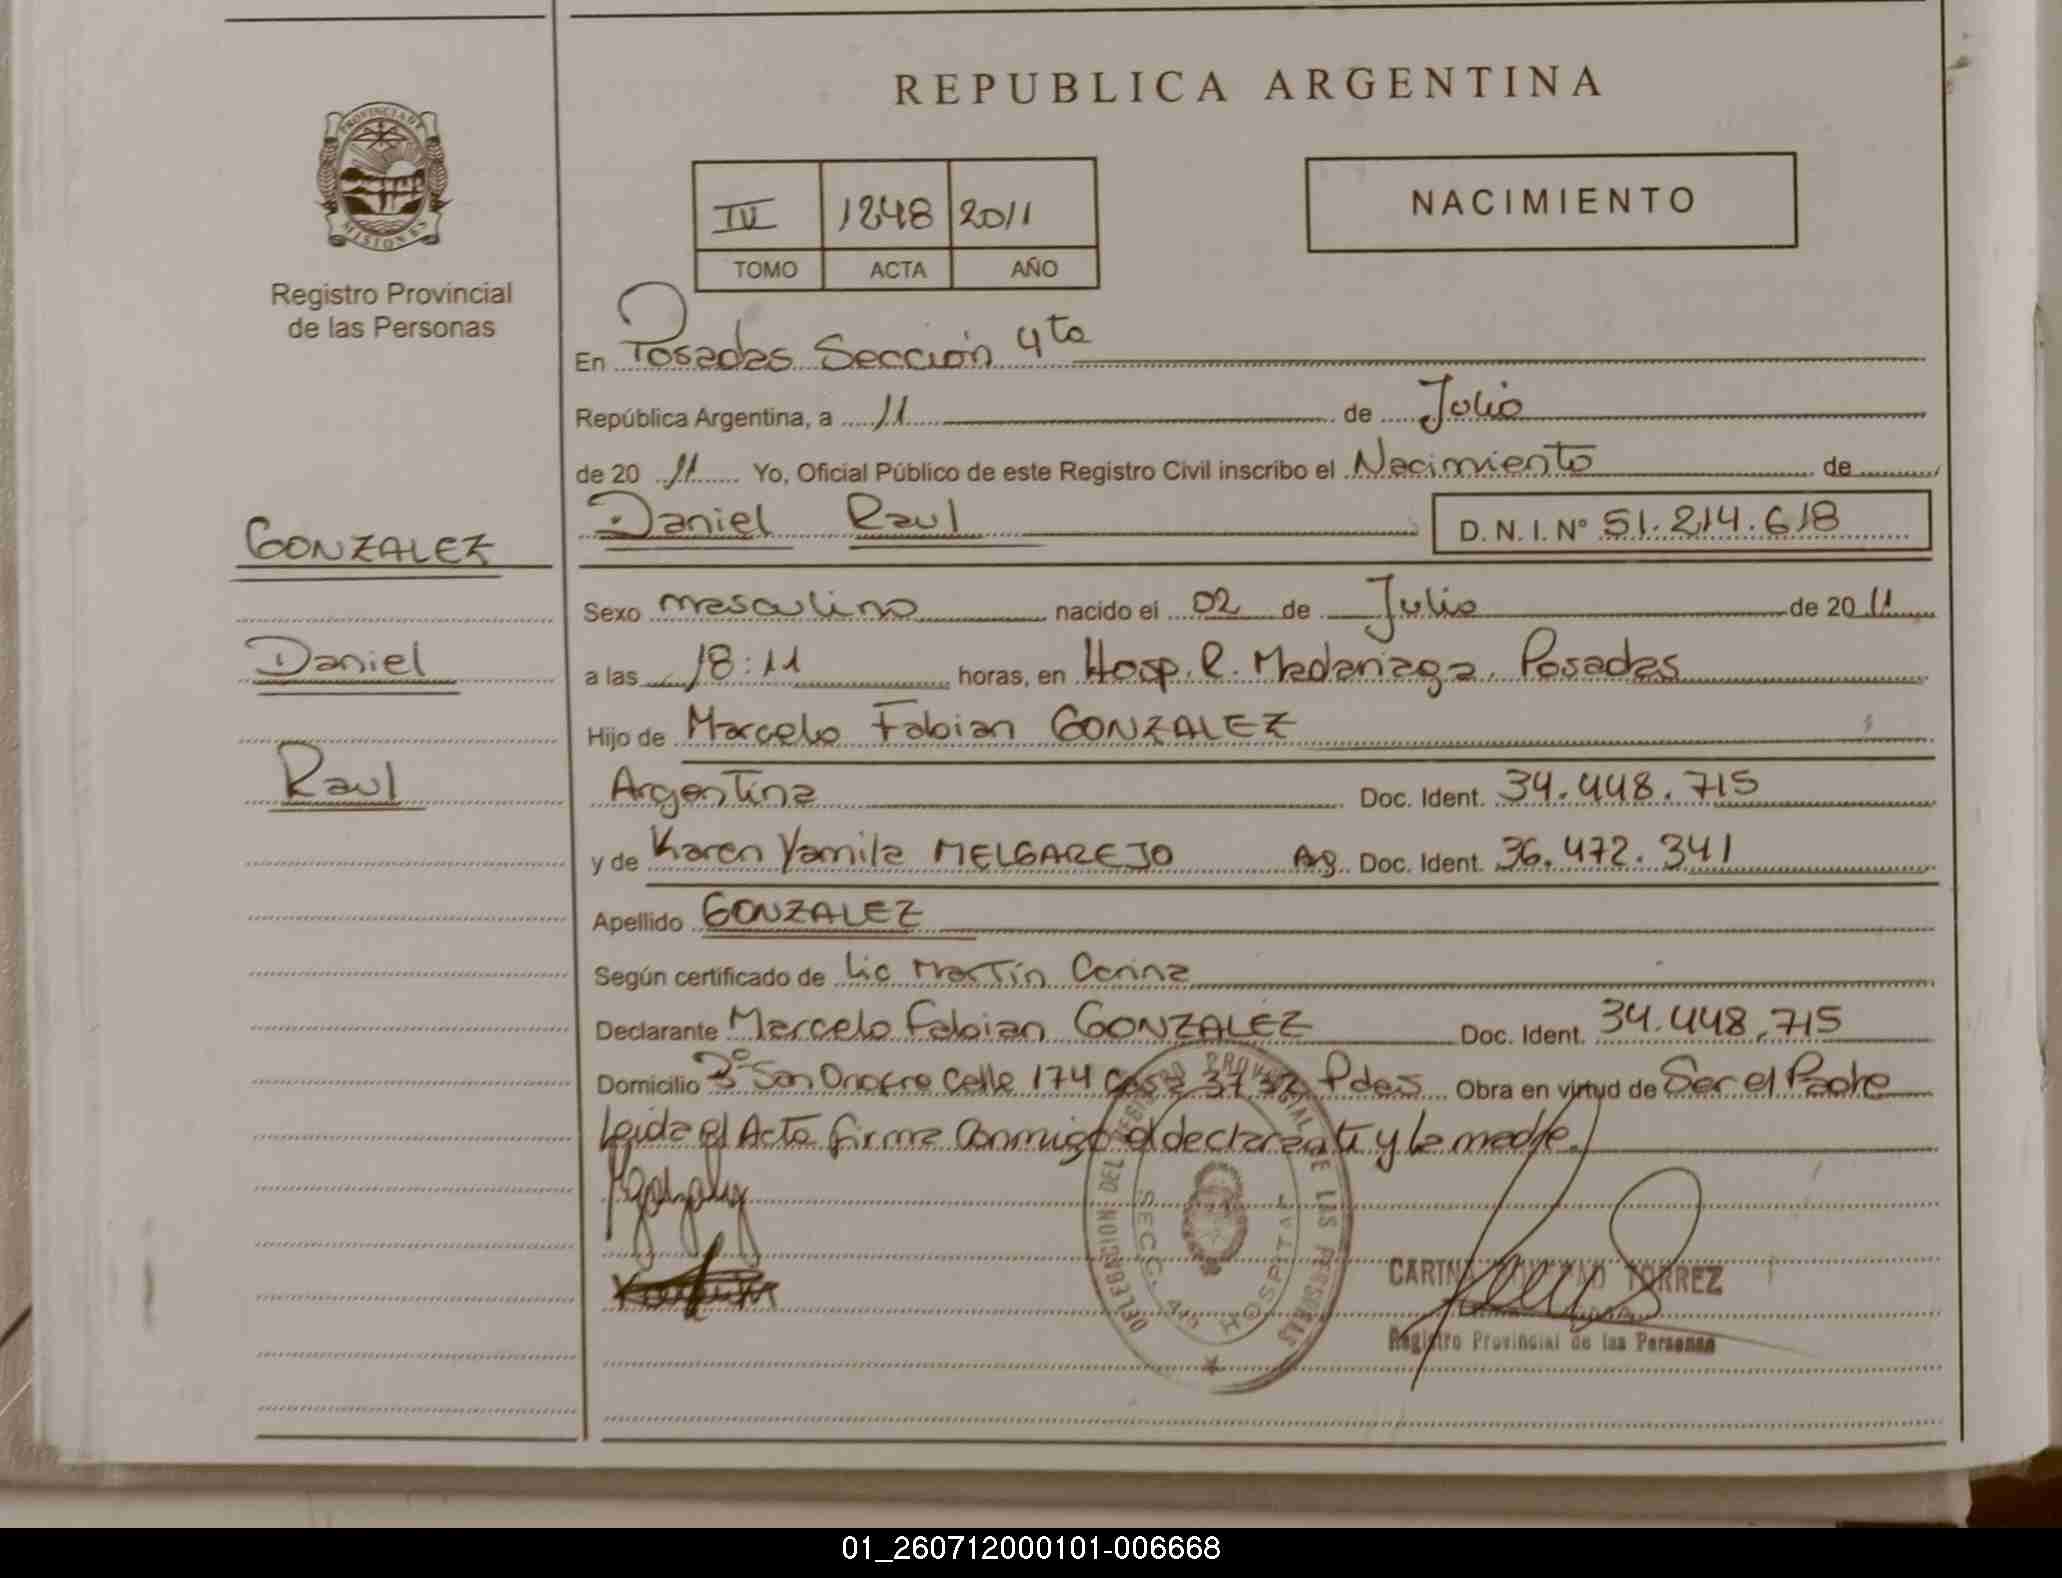 REPUBLICA ARGENTINA
PROVINCIA DE MISIONES
Registro Provincial
de las Personas
IV 1248 2011
TOMO ACTA AÑO
NACIMIENTO
En Posadas Sección 4ta
República Argentina, a 11 de Julio
de 20 11 Yo, Oficial Público de este Registro Civil inscribo el Nacimiento de
GONZALEZ
Daniel
Raul
Daniel Raul D. N. I. Nº 51.214.618
Sexo masculino nacido el 02 de Julio de 20 11
a las 18:11 horas, en Hosp. R. Madariaga. Posadas
Hijo de Marcelo Fabian GONZALEZ
Argentina Doc. Ident. 34.448.715
y de Karen Yamila MELGAREJO Arg. Doc. Ident. 36.472.341
Apellido GONZALEZ
Según certificado de Lic Martin Carina
Declarante Marcelo Fabian GONZALEZ Doc. Ident. 34.448.715
Domicilio Bº San Onofre Calle 174 casa Pdas Obra en virtud de Ser el Padre
Leida el Acta firma conmigo el declarante y la madre.
DELEGACION DEL REGISTRO PROVINCIAL DE LAS PERSONAS
SECC. 4ta HOSPITAL
CARINA TORREZ
Registro Provincial de las Personas
01_260712000101-006668